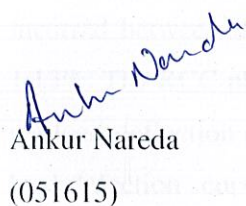 Ankur Nareda
Ankur Nareda
(051615)